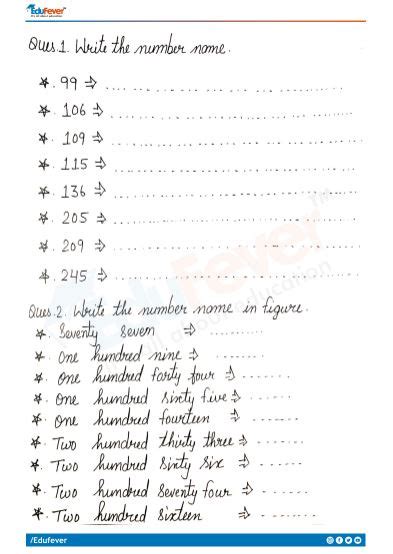 EduFever
It's all about education
Ques.1. Write the number name.
99 ⇒ ....................
106 ⇒ ....................
109 ⇒ ....................
115 ⇒ ....................
136 ⇒ ....................
205 ⇒ ....................
209 ⇒ ....................
245 ⇒ ....................
EduFever™
all about education
Ques.2. Write the number name in figure.
Seventy seven ⇒ ..........
One hundred nine ⇒ ........
One hundred forty four ⇒ .......
One hundred sixty five ⇒ .......
One hundred fourteen ⇒ .......
Two hundred thirty three ⇒ .......
Two hundred sixty six ⇒ .......
Two hundred seventy four ⇒ .......
Two hundred sixteen ⇒ .......
/Edufever